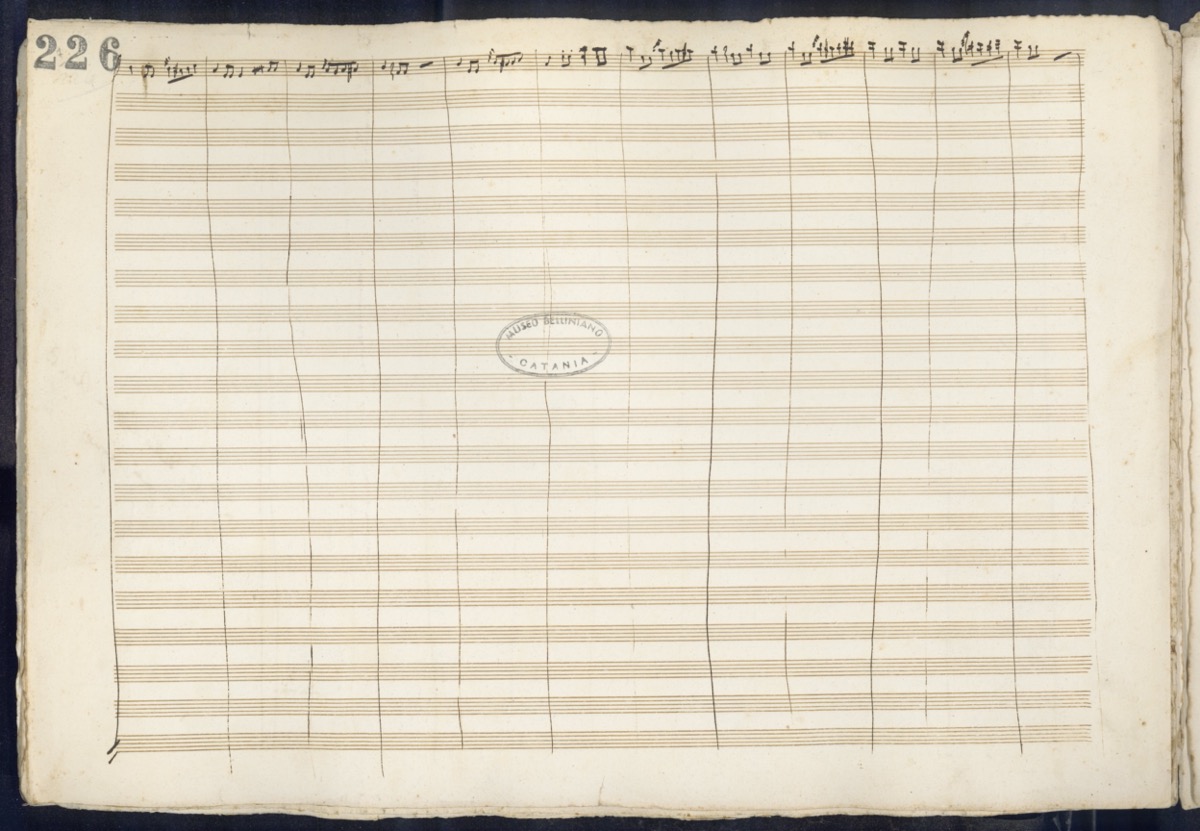 226
MUSEO BELLINIANO
- CATANIA -